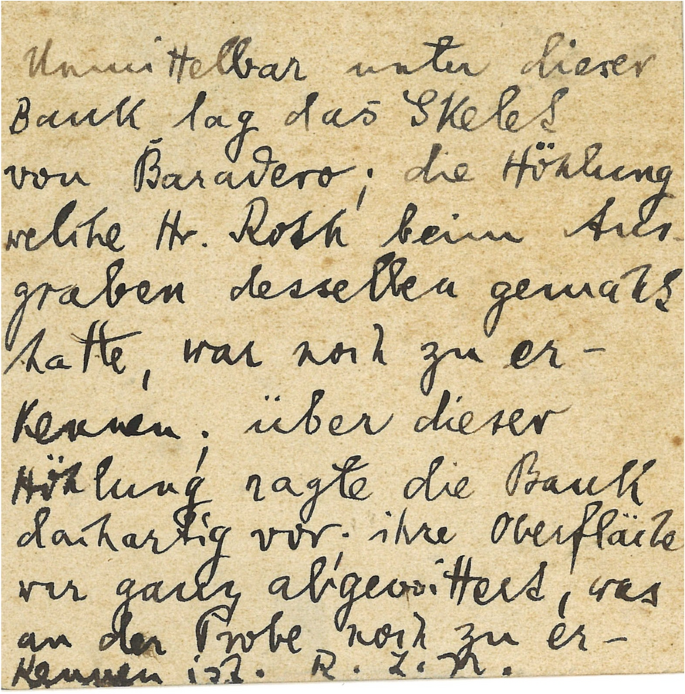 Unmittelbar unter dieser
Bank lag das Skelet
von Baradero; die Höhlung
welche Hr. Roth beim Aus-
graben desselben gemacht
hatte, war noch zu er-
kennen; über dieser
Höhlung ragte die Bank
dachartig vor; ihre Oberfläche
war ganz abgewittert, was
an der Probe noch zu er-
kennen ist. R. L. N.